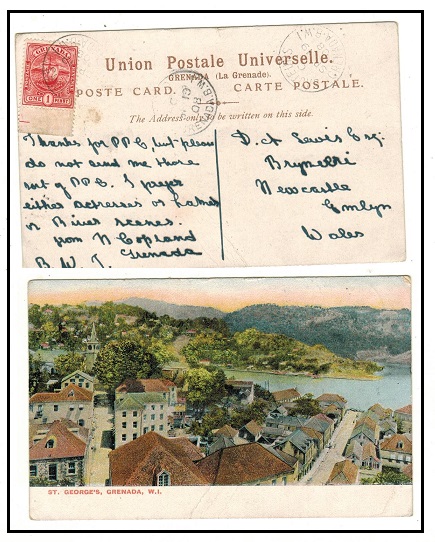 GRENADA
ONE 1 PENNY
Union Postale Universelle.
GRENADA (La Grenade.)
POSTE CARD. CARTE POSTALE.
The Address only to be written on this side.
Thanks for PPC, but please
do not send me those
sort of PPC. I prefer
either actresses or Lakes
or River scenes.
from N Copland
B. W. I. Grenada
D. A Lewis Esq.
Newcastle
Emlyn
Wales
ST. GEORGE'S, GRENADA, W.I.